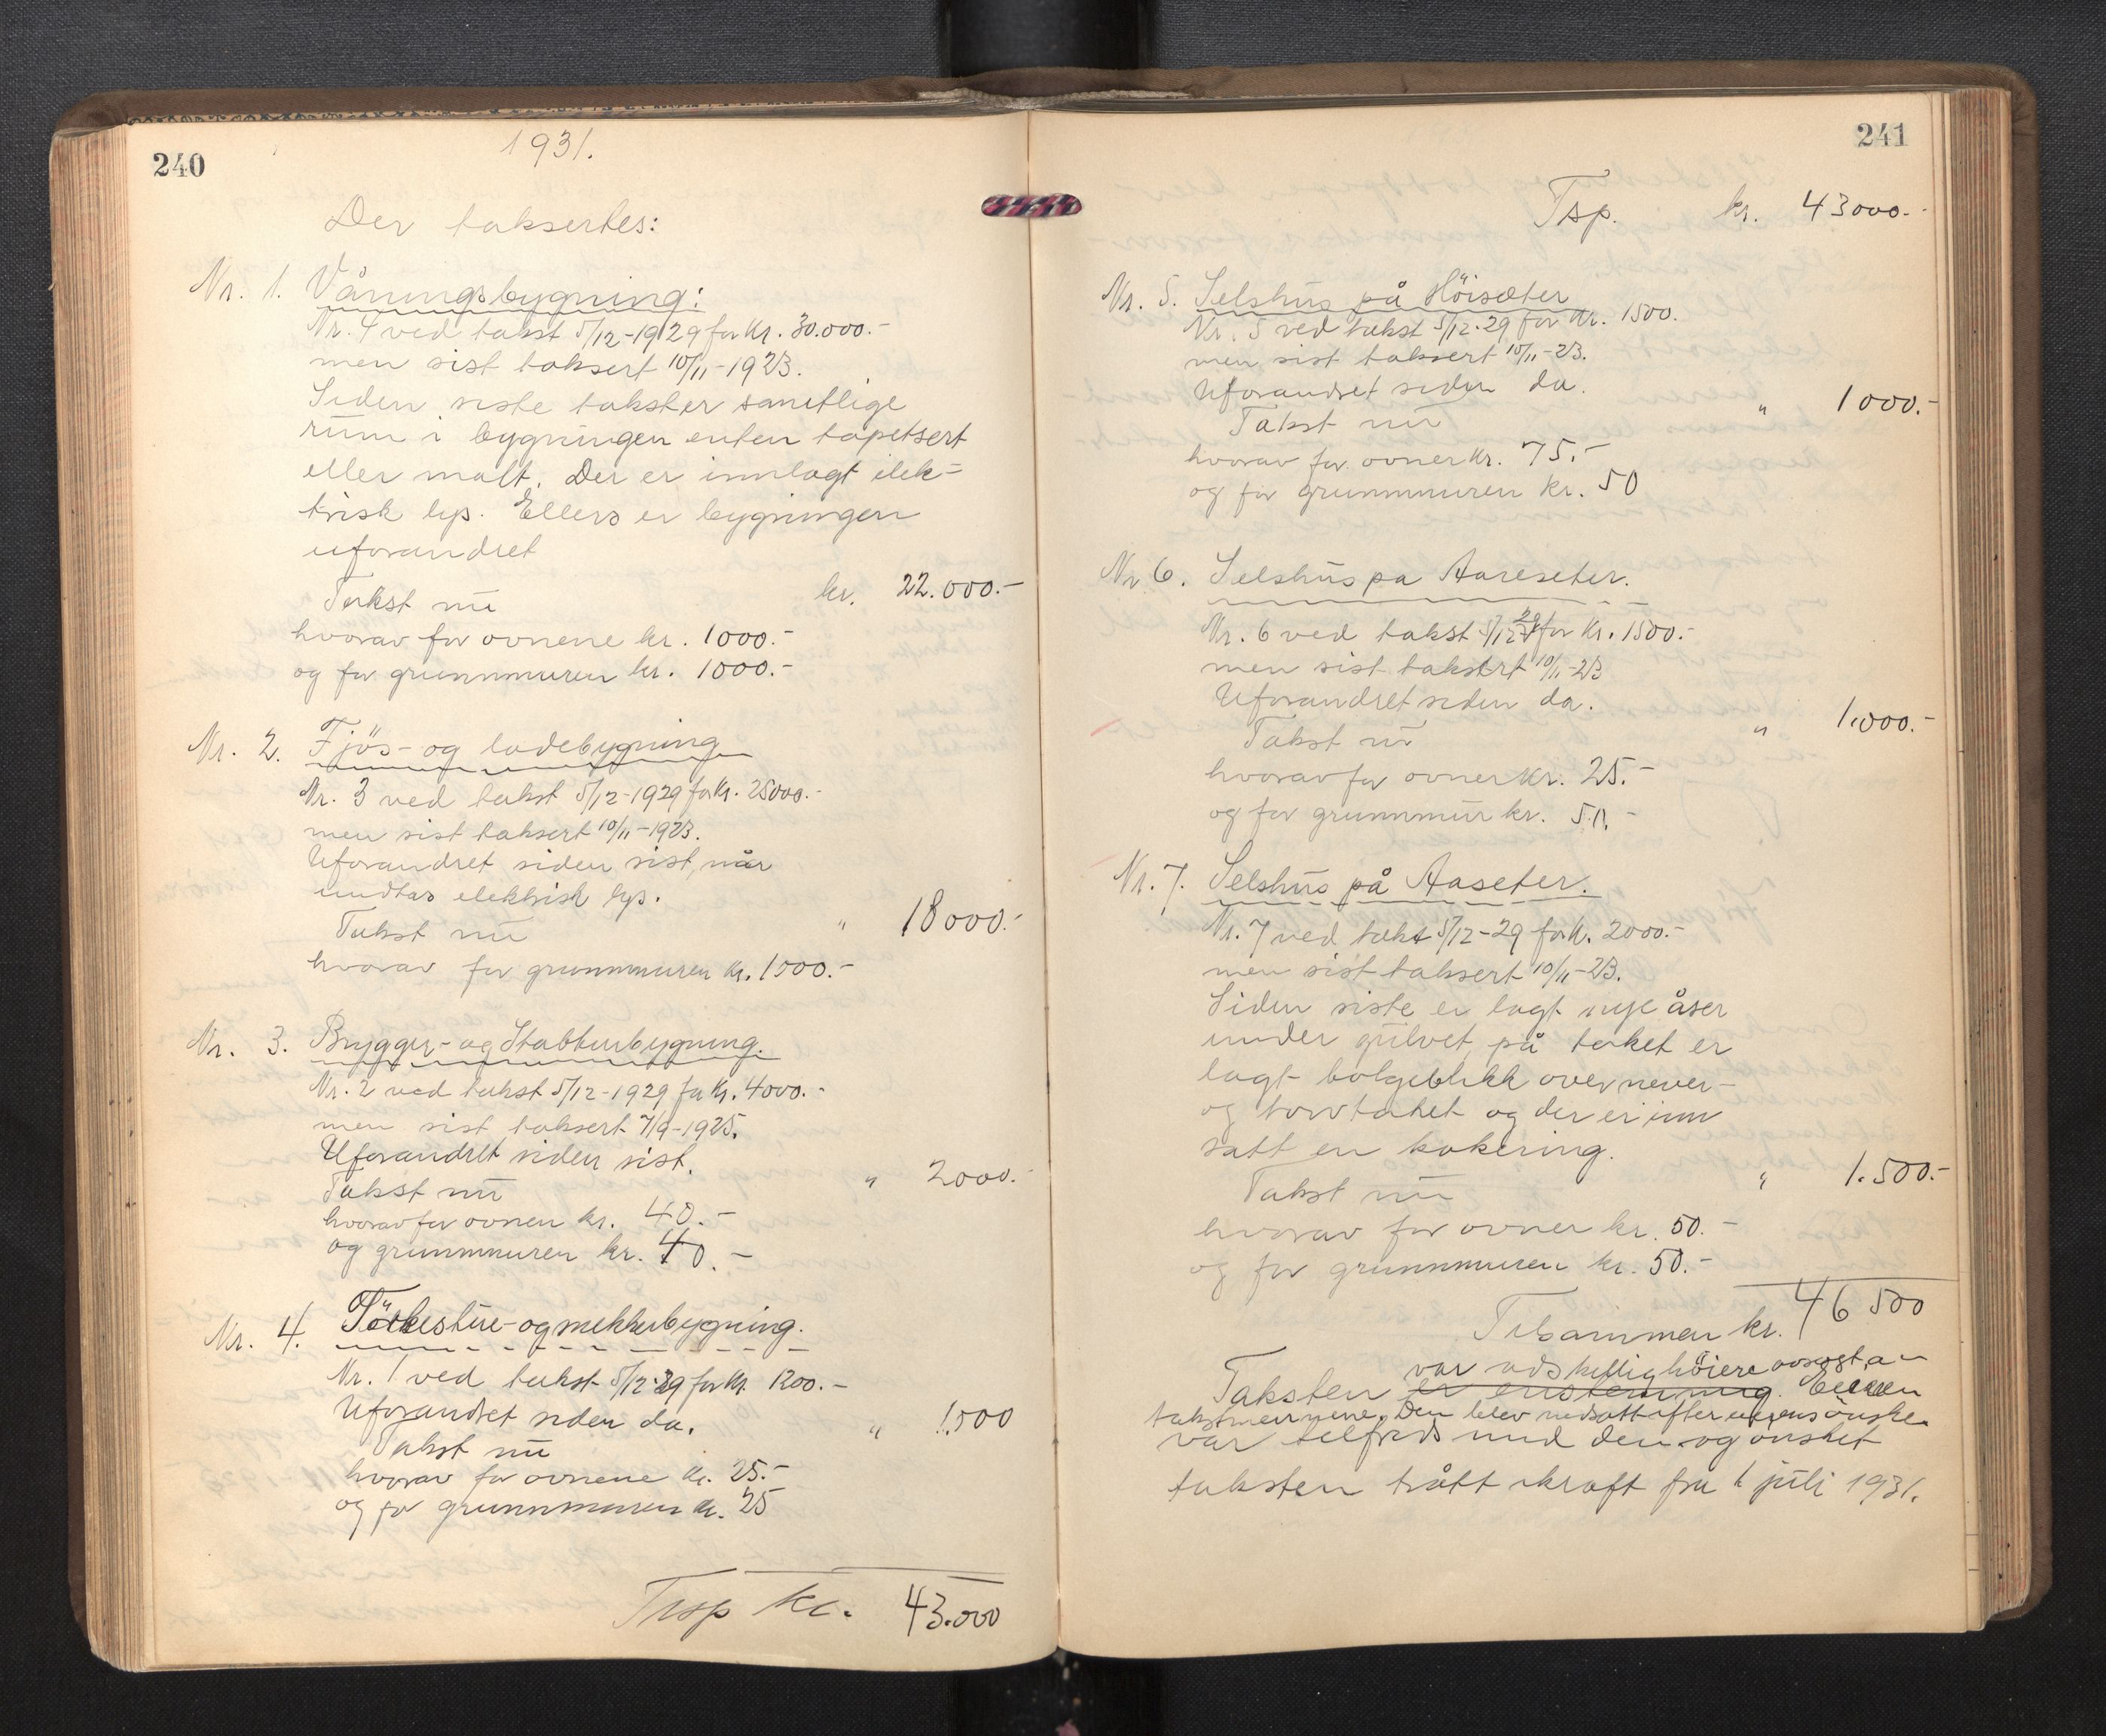 240
1931.
Der taksertes:
Nr. 1. Våningsbygning:
Nr. 4 ved takst 5/12-1929 for Kr. 30.000.-
men sist taksert 10/11-1923.
Siden siste takst er samtlige
rum i bygningen enten tapetsert
eller malt. Der er innlagt elek-
trisk lys. Ellers er bygningen
uforandret
Takst nu kr. 22.000.-
hvorav for ovnene kr. 1000.-
og for grunnmuren kr. 1000.-
Nr. 2. Fjös- og ladebygning
Nr. 3 ved takst 5/12-1929 for Kr. 25000.-
men sist taksert 10/11-1923.
Uforandret siden sist, når
undtas elektrisk lys.
Takst nu " 18000.-
hvorav for grunnmuren kr. 1500.-
Nr. 3. Brygger- og Stabbursbygning.
Nr. 2 ved takst 5/12-1929 for Kr. 4000.-
men sist taksert 7/9-1925.
Uforandret siden sist.
Takst nu " 2000.-
hvorav for ovnen kr. 40.-
og grunnmuren kr. 40.-
Nr. 4. Törkestue- og bygning.
Nr. 1 ved takst 5/12-29 for Kr. 1200.-
Uforandret siden da.
Takst nu " 1.500
hvorav for ovnene kr. 25.-
og for grunnmuren kr. 25
Tsp kr. 43.000
241
Tsp. kr. 43000.-
Nr. 5. Selshus på Höisæter
Nr. 5 ved takst 5/12-29 for Kr. 1500.
men sist taksert 10/11-23.
Uforandret siden da.
Takst nu " 1000.-
hvorav for ovner kr. 75.-
og for grunnmuren kr. 50
Nr. 6. Selshus pa Aareseter.
Nr. 6 ved takst 5/12 29 for Kr. 1500.-
men sist taksert 10/11-23
Uforandret siden da.
Takst nu " 1.000.-
hvorav for ovner kr. 25.-
og for grunnmur kr. 50.-
Nr. 7. Selshus på Aaseter.
Nr. 7 ved takst 5/12-29 for Kr. 2000.-
men sist taksert 10/11-23.
Siden siste er lagt nye åser
under gulvet, på taket er
lagt bølgeblikk over never-
og torvtaket og der er inn
satt en kokering.
Takst nu " 1.500.-
hvorav for ovner kr. 50.-
og for grunnmuren kr. 50.-
Tilsammen kr. 46 500
var adskillig höiere av
Taksten er enstemmig. Eieren
takstmennene. Den blev nedsatt efter eierens önske.
var tilfreds med den og ønsket
taksten trått ikraft fra 1 juli 1931.